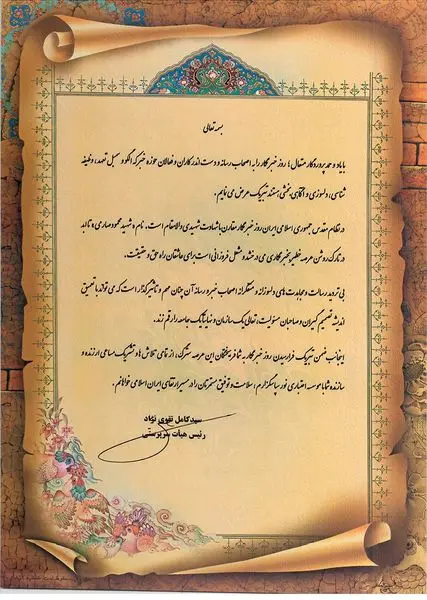 بسمه تعالی
با یاد و حمد پروردگار متعال، روز خبرنگار را به اصحاب رسانه و دست اندرکاران و فعالان حوزه خبر که الگو و سمبل تعهد، وظیفه
شناسی، دلسوزی و آگاهی بخشی هستند تبریک عرض می نمایم.
در نظام مقدس جمهوری اسلامی ایران روز خبرنگار مقارن با شهادت شهیدی والامقام است. نام «شهید محمود صارمی» تا ابد
در تارک روشن عرصه خطیر خبرنگاری می درخشد و مشعل فروزانی است برای عاشقان راه حق و حقیقت.
بی تردید رسالت و مجاهدت های دلسوزانه و متفکرانه اصحاب خبر و رسانه آن چنان مهم و تاثیرگذار است که می تواند با تعمیق
اندیشه تصمیم گیران و صاحبان مسئولیت، تعالی یک سازمان و نهایتا یک جامعه را رقم زند.
اینجانب ضمن تبریک فرارسیدن روز خبرنگار به شما فرهیختگان این عرصه سترگ، از تمامی تلاش ها و تشریک مساعی ارزنده و
سازنده شما با موسسه اعتباری نور سپاسگزارم، سلامت و توفیق مستمرتان را در مسیر ارتقای ایران اسلامی خواهانم.
سید کامل تقوی نژاد
رئیس هیات سرپرستی